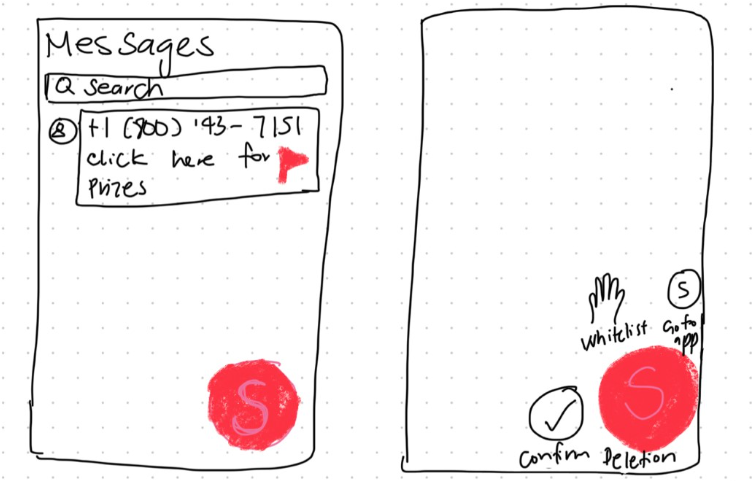 Messages
Q Search
+1 (800) 143-7151
click here for
Prizes
S
S
Whitelist
Go to
app
S
Confirm
Deletion